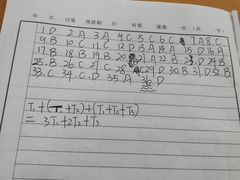 1.D 2.A 3.A 4.C 5.C 6.C 7.A 8.C
9.B 10.C 11.C 12.D 13.A 14.A 15.D 16.A
17.B 18.B 19.B 20. 21.A 22.B 23.D 24.B
25.B 26.C 27.C 28. 29.D 30.B 31.D 32.B
33.C 34.C.D 35.A 36.D
T₁+(T₁+T₂)+(T₁+T₂+T₃)
= 3T₁+2T₂+T₃